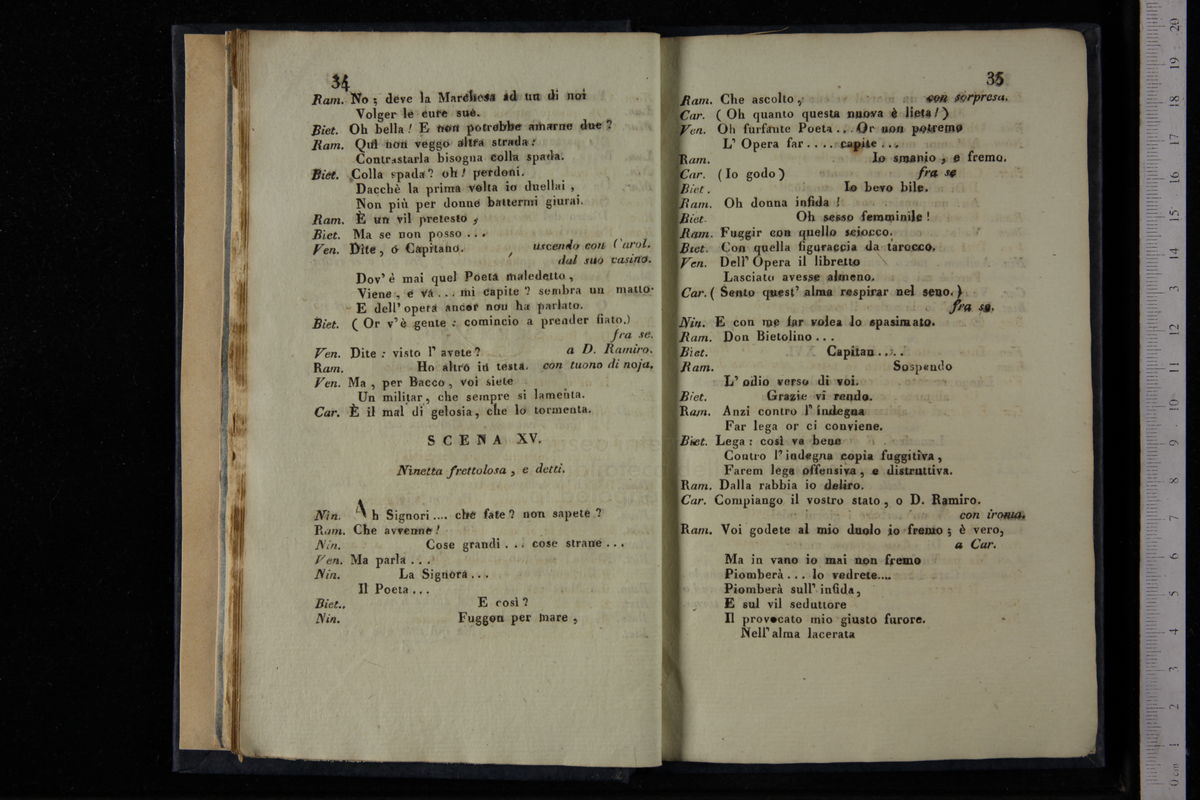 34
Ram. No; deve la Marchesa ad un di noi
Volger le cure sue.
Biet. Oh bella! E non potrebbe amarne due?
Ram. Quì non veggo altra strada:
Contrastarla bisogna colla spada.
Biet. Colla spada? oh! perdoni.
Dacchè la prima volta io duellai,
Non più per donne battermi giurai.
Ram. È un vil pretesto,
Biet. Ma se non posso...
Ven. Dite, ó Capitano. uscendo con Carol.
dal suo casino.
Dov' è mai quel Poeta maledetto,
Viene, e va... mi capite? sembra un matto
E dell' opera ancor non ha parlato.
Biet. (Or v'è gente: comincio a prender fiato.)
fra se.
Ven. Dite: visto l' avete? a D. Ramiro.
Ram. Ho altro in testa. con tuono di noja.
Ven. Ma, per Bacco, voi siete
Un militar, che sempre si lamenta.
Car. È il mal di gelosia, che lo tormenta.
SCENA XV.
Ninetta frettolosa, e detti.
Nin. Ah Signori.... che fate? non sapete?
Ram. Che avvenne!
Nin. Cose grandi... cose strane...
Ven. Ma parla...
Nin. La Signora...
Il Poeta...
Biet.. E così?
Nin. Fuggon per mare,
35
Ram. Che ascolto, con sorpresa.
Car. (Oh quanto questa nuova è lieta!)
Ven. Oh furfante Poeta... Or non potremo
L' Opera far.... capite...
Ram. Io smanio, e fremo.
Car. (Io godo) fra se
Biet. Io bevo bile.
Ram. Oh donna infida!
Biet. Oh sesso femminile!
Ram. Fuggir con quello sciocco.
Biet. Con quella figuraccia da tarocco.
Ven. Dell' Opera il libretto
Lasciato avesse almeno.
Car. (Sento quest' alma respirar nel seno.)
fra se.
Nin. E con me far volea lo spasimato.
Ram. Don Bietolino...
Biet. Capitan...
Ram. Sospendo
L' odio verso di voi.
Biet. Grazie vi rendo.
Ram. Anzi contro l' indegna
Far lega or ci conviene.
Biet. Lega: così va bene
Contro l' indegna copia fuggitiva,
Farem lega offensiva, e distruttiva.
Ram. Dalla rabbia io deliro.
Car. Compiango il vostro stato, o D. Ramiro.
con ironia.
Ram. Voi godete al mio duolo io fremo; è vero,
a Car.
Ma in vano io mai non fremo
Piomberà... lo vedrete....
Piomberà sull' infida,
E sul vil seduttore
Il provocato mio giusto furore.
Nell' alma lacerata